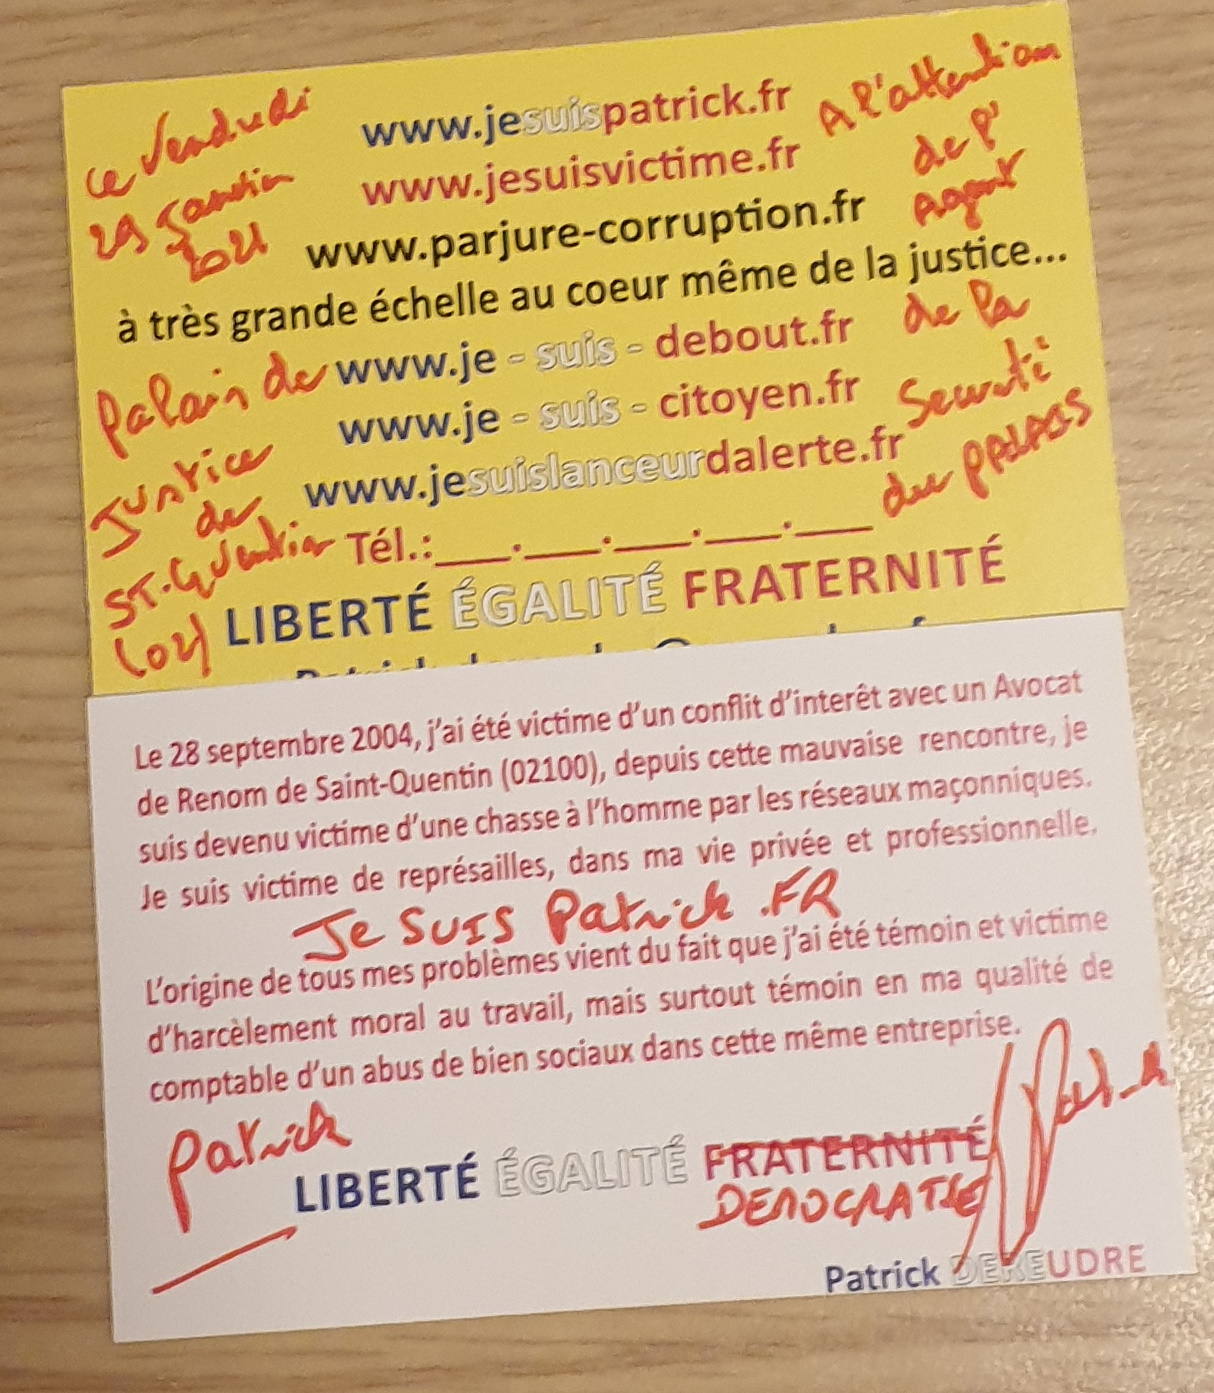 ce Vendredi
29 Janvier
2021
www.jesuispatrick.fr
A l'attention
de l'
Agent
www.jesuisvictime.fr
www.parjure-corruption.fr
à très grande échelle au coeur même de la justice...
Palais de
Justice
de
ST-Quentin
(02)
www.je - suis - debout.fr
de la
Securité
du PALAIS
www.je - suis - citoyen.fr
www.jesuislanceurdalerte.fr
Tél.:___.___.___.___.___
LIBERTÉ ÉGALITÉ FRATERNITÉ
Le 28 septembre 2004, j'ai été victime d'un conflit d'interêt avec un Avocat
de Renom de Saint-Quentin (02100), depuis cette mauvaise rencontre, je
suis devenu victime d'une chasse à l'homme par les réseaux maçonniques.
Je suis victime de représailles, dans ma vie privée et professionnelle.
Je SUIS Patrick .FR
L'origine de tous mes problèmes vient du fait que j'ai été témoin et victime
d'harcèlement moral au travail, mais surtout témoin en ma qualité de
comptable d'un abus de bien sociaux dans cette même entreprise.
Patrick
LIBERTÉ ÉGALITÉ FRATERNITÉ
DEMOCRATIE
Patrick DEREUDRE